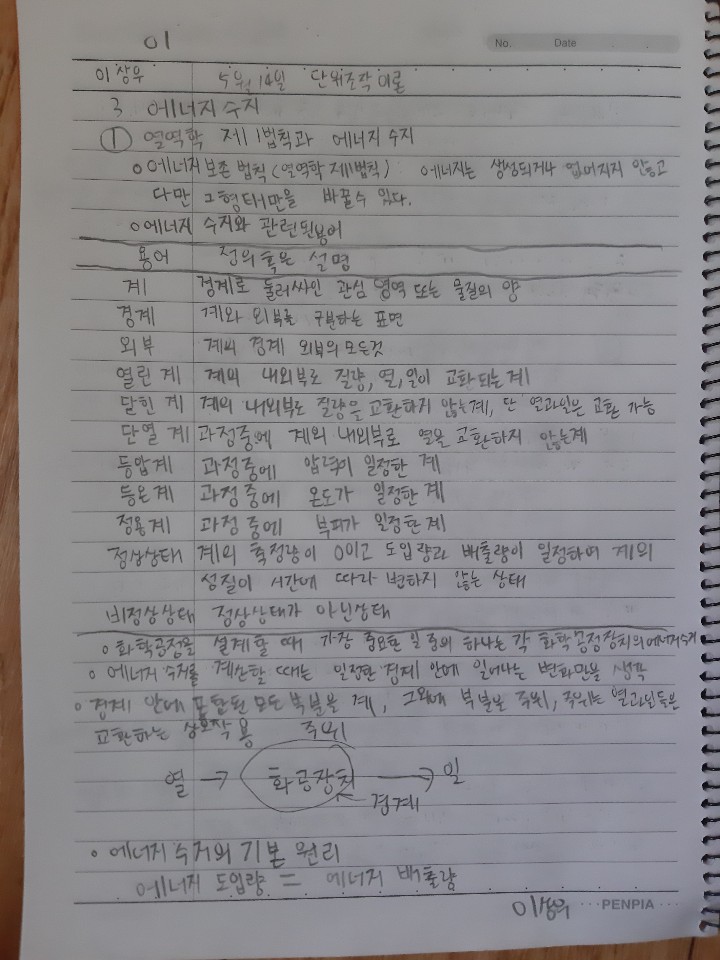 01
No. Date
이상우 5월 14일 단위조작 이론
3 에너지 수지
① 열역학 제1법칙과 에너지 수지
o 에너지 보존 법칙 (열역학 제1법칙) : 에너지는 생성되거나 없어지지 않고
다만 그 형태만을 바꿀 수 있다.
o 에너지 수지와 관련된 용어
용어 정의 혹은 설명
계 경계로 둘러싸인 관심 영역 또는 물질의 양
경계 계와 외부를 구분하는 표면
외부 계의 경계 외부의 모든것
열린 계 계의 내외부로 질량, 열, 일이 교환되는 계
닫힌 계 계의 내외부로 질량을 교환하지 않는계, 단 열과일은 교환 가능
단열 계 과정중에 계의 내외부로 열을 교환하지 않는계
등압계 과정중에 압력이 일정한 계
등온계 과정중에 온도가 일정한 계
정용계 과정중에 부피가 일정한 계
정상상태 계의 축적량이 0이고 도입량과 배출량이 일정하여 계의
성질이 시간에 따라 변하지 않는 상태
비정상상태 정상상태가 아닌상태
o 화학공정을 설계할 때 가장 중요한 일 중의 하나는 각 화학공정장치의 에너지수지
o 에너지 수지를 계산할 때는 일정한 경계 안에 일어나는 변화만을 생각
o 경계 안에 포함된 모든 부분을 계, 그외에 부분은 주위, 주위는 열과일등은
교환하는 상호작용 주위
열 → 화공장치 → 일
경계
o 에너지 수지의 기본 원리
에너지 도입량 = 에너지 배출량
이상우 PENPIA